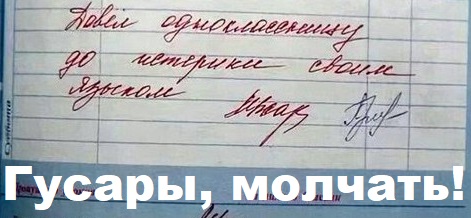 Довёл одноклассницу
до истерики своим
языком
Суббота
Гусары, молчать!